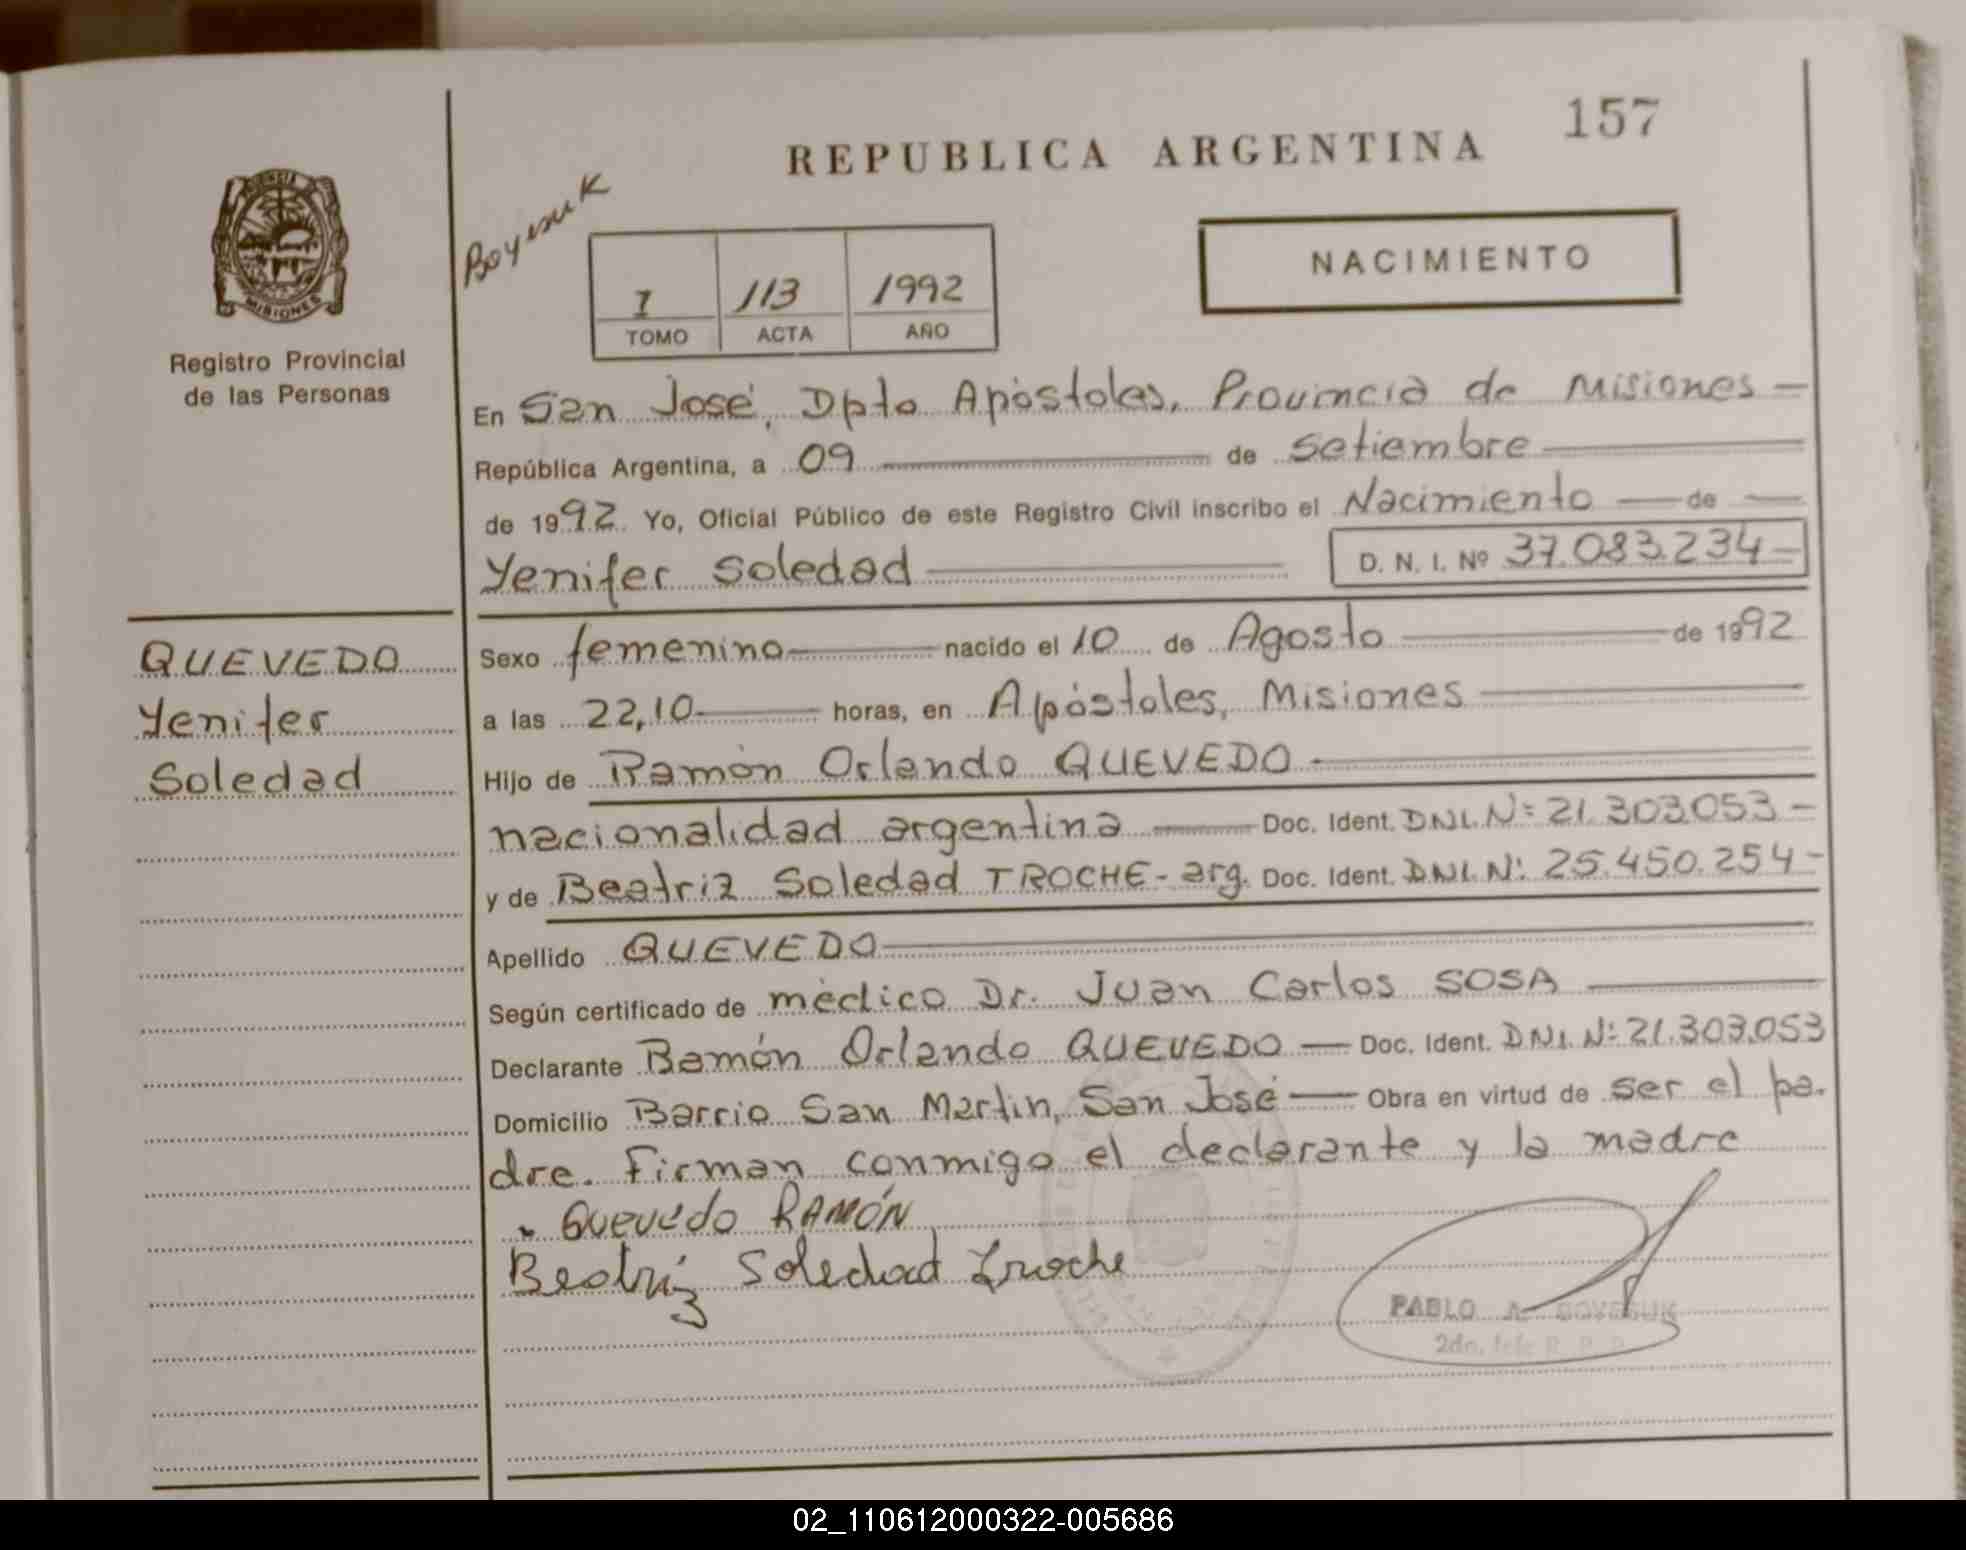 157
REPUBLICA ARGENTINA
NACIMIENTO
PROVINCIA DE
MISIONES
Registro Provincial
de las Personas
I 113 1992
TOMO ACTA AÑO
En San José, Dpto Apóstoles, Provincia de Misiones —
República Argentina, a 09 — de Setiembre —
de 1992 Yo, Oficial Público de este Registro Civil inscribo el Nacimiento — de —
Yenifer Soledad — D. N. I. Nº 37.083.234 —
QUEVEDO
Yenifer
Soledad
Sexo femenino — nacido el 10 de Agosto — de 1992
a las 22,10 — horas, en Apóstoles, Misiones —
Hijo de Ramón Orlando QUEVEDO —
nacionalidad argentina — Doc. Ident. DNI. Nº 21.303.053 —
y de Beatriz Soledad TROCHE - arg. Doc. Ident. DNI. Nº 25.450.254 —
Apellido QUEVEDO —
Según certificado de médico Dr. Juan Carlos SOSA —
Declarante Ramón Orlando QUEVEDO — Doc. Ident. DNI. Nº 21.303.053
Domicilio Barrio San Martin, San José — Obra en virtud de ser el pa-
dre. Firman conmigo el declarante y la madre
Quevedo RAMÓN
Beatriz Soledad Troche
PABLO A. BOYESUK
2do. Jefe R. P. P.
02_110612000322-005686